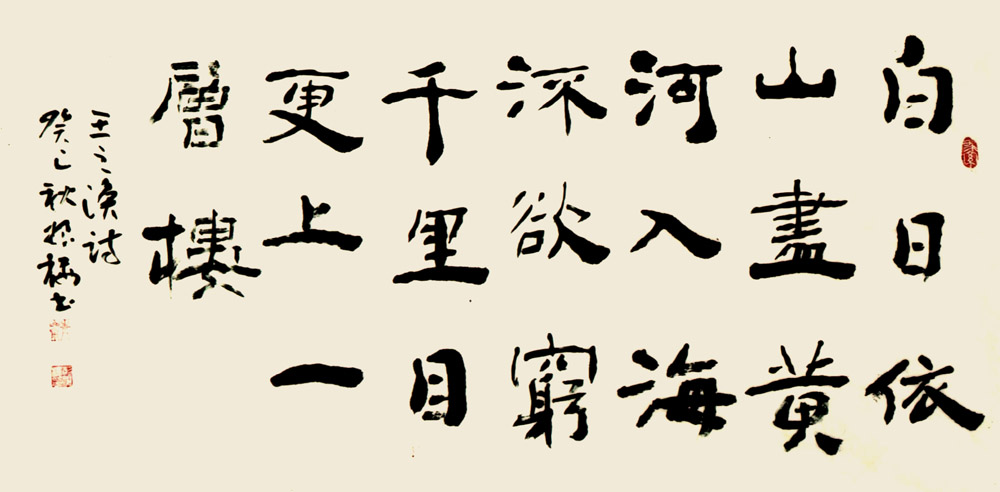 白日依
山盡黄
河入海
流欲窮
千里目
更上一
層樓
王之渙詩
癸巳秋书